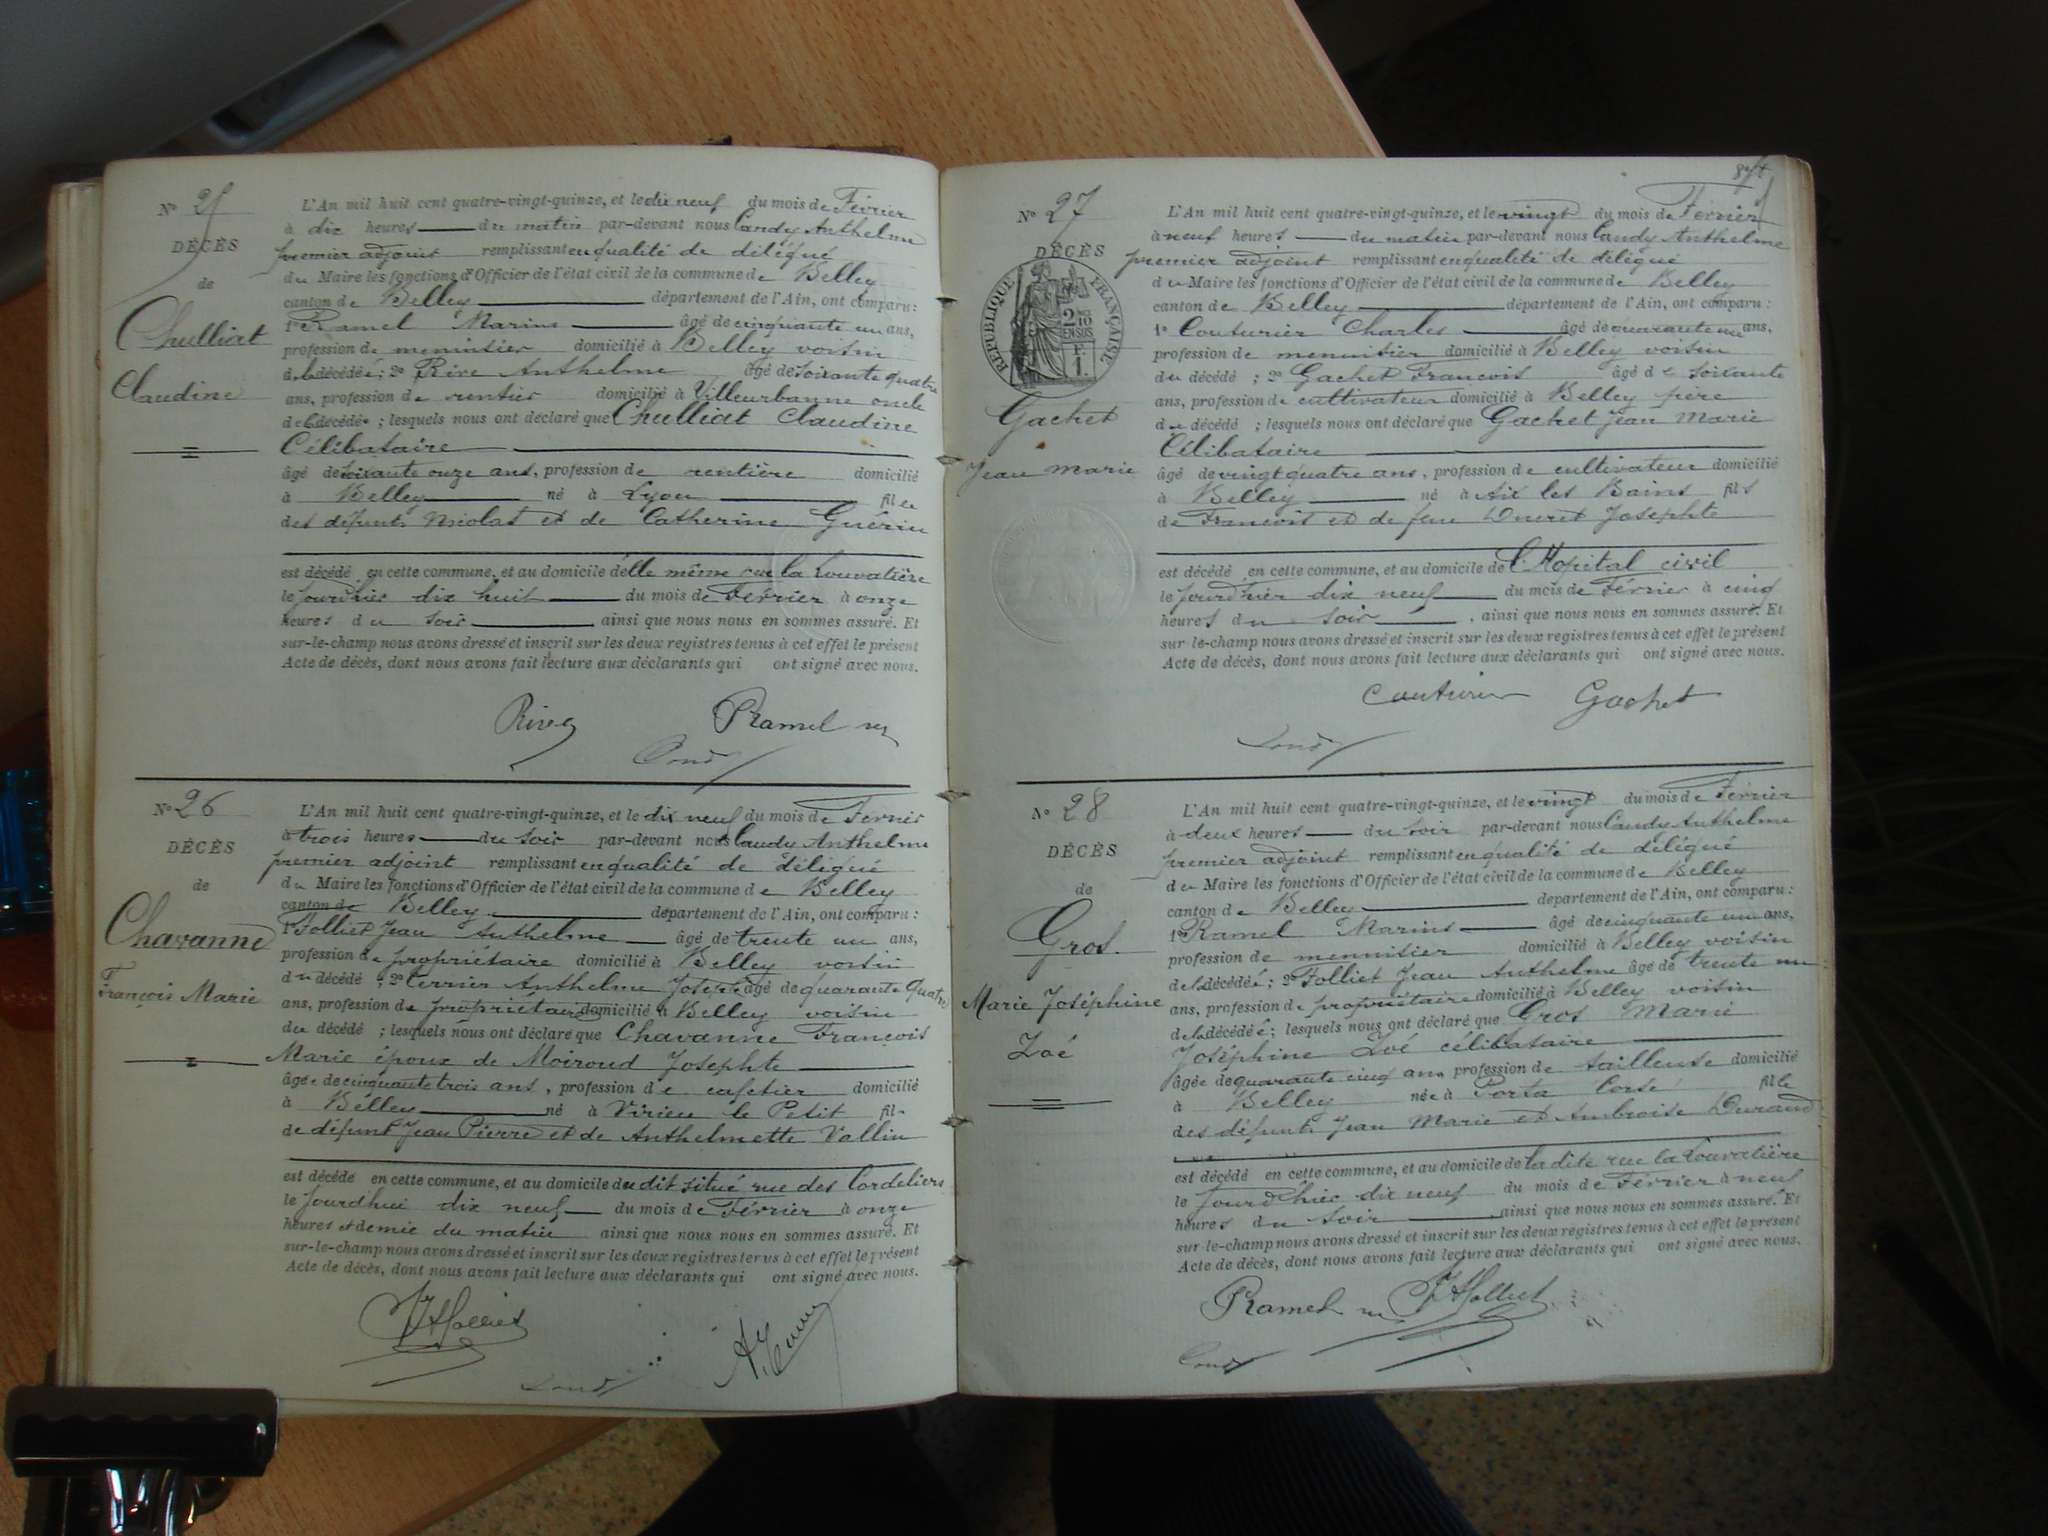 N° 25
DÉCÈS
de
Chulliat
Claudine
L'An mil huit cent quatre-vingt-quinze, et le dix neuf du mois de Février
à dix heures du matin par-devant nous Candy Anthelme
premier adjoint remplissant en qualité de délégué
du Maire les fonctions d'Officier de l'état civil de la commune de Belley
canton de Belley département de l'Ain, ont comparu :
1° Ramel Marius âgé de cinquante un ans,
profession de menuisier domicilié à Belley voisin
de la décédée ; 2° Rive Anthelme âgé de soixante quatre
ans, profession de rentier domicilié à Villeurbanne oncle
de la décédée ; lesquels nous ont déclaré que Chulliat Claudine
Célibataire
âgé de soixante onze ans, profession de rentière domicilié
à Belley né à Lyon fille
des défunts Nicolas et de Catherine Guérin
est décédé en cette commune, et au domicile d'elle même rue la Louvatière
le jourdhier dix huit du mois de Février à onze
heures du soir ainsi que nous nous en sommes assuré. Et
sur-le-champ nous avons dressé et inscrit sur les deux registres tenus à cet effet le présent
Acte de décès, dont nous avons fait lecture aux déclarants qui ont signé avec nous.
Rive Ramel
Candy
N° 26
DÉCÈS
de
Chavanne
François Marie
L'An mil huit cent quatre-vingt-quinze, et le dix neuf du mois de Février
à trois heures du soir par-devant nous Candy Anthelme
premier adjoint remplissant en qualité de délégué
du Maire les fonctions d'Officier de l'état civil de la commune de Belley
canton de Belley département de l'Ain, ont comparu :
1° Folliet Jean Anthelme âgé de trente un ans,
profession de propriétaire domicilié à Belley voisin
du décédé ; 2° Terrier Anthelme Joseph âgé de quarante quatre
ans, profession de propriétaire domicilié à Belley voisin
du décédé ; lesquels nous ont déclaré que Chavanne François
Marie époux de Moiroud Josephte
âgé de cinquante trois ans, profession de cafetier domicilié
à Belley né à Virieu le Petit fils
de défunt Jean Pierre et de Anthelmette Vallin
est décédé en cette commune, et au domicile dudit situé rue des Cordeliers
le jourdhui dix neuf du mois de Février à onze
heures et demie du matin ainsi que nous nous en sommes assuré. Et
sur-le-champ nous avons dressé et inscrit sur les deux registres tenus à cet effet le présent
Acte de décès, dont nous avons fait lecture aux déclarants qui ont signé avec nous.
JAFolliet
Candy
N° 27
DÉCÈS
RÉPUBLIQUE FRANÇAISE
2/10 EN SUS
F. 1.
Gachet
Jean Marie
L'An mil huit cent quatre-vingt-quinze, et le vingt du mois de Février
à neuf heures du matin par-devant nous Candy Anthelme
premier adjoint remplissant en qualité de délégué
du Maire les fonctions d'Officier de l'état civil de la commune de Belley
canton de Belley département de l'Ain, ont comparu :
1° Couturier Charles âgé de quarante un ans,
profession de menuisier domicilié à Belley voisin
du décédé ; 2° Gachet François âgé de soixante
ans, profession de cultivateur domicilié à Belley père
du décédé ; lesquels nous ont déclaré que Gachet Jean Marie
Célibataire
âgé de vingt quatre ans, profession de cultivateur domicilié
à Belley né à Aix les Bains fils
de François et de feue Ducret Josephte
est décédé en cette commune, et au domicile de l'Hopital civil
le jourdhier dix neuf du mois de Février à cinq
heures du soir, ainsi que nous nous en sommes assuré. Et
sur-le-champ nous avons dressé et inscrit sur les deux registres tenus à cet effet le présent
Acte de décès, dont nous avons fait lecture aux déclarants qui ont signé avec nous.
Couturier Gachet
Candy
N° 28
DÉCÈS
de
Gros
Marie Joséphine
Zoé
L'An mil huit cent quatre-vingt-quinze, et le vingt du mois de Février
à deux heures du soir par-devant nous Candy Anthelme
premier adjoint remplissant en qualité de délégué
du Maire les fonctions d'Officier de l'état civil de la commune de Belley
canton de Belley département de l'Ain, ont comparu :
1° Ramel Marius âgé de cinquante un ans,
profession de menuisier domicilié à Belley voisin
de la décédée ; 2° Folliet Jean Anthelme âgé de trente un
ans, profession de propriétaire domicilié à Belley voisin
de la décédée ; lesquels nous ont déclaré que Gros Marie
Joséphine Zoé célibataire
âgée de quarante cinq ans, profession de tailleuse domicilié
à Belley née à Porta Corse fille
des défunts Jean Marie et Ambroise Durand
est décédé en cette commune, et au domicile de la dite rue la Louvatière
le jourdhier dix neuf du mois de Février à neuf
heures du soir ainsi que nous nous en sommes assuré. Et
sur-le-champ nous avons dressé et inscrit sur les deux registres tenus à cet effet le présent
Acte de décès, dont nous avons fait lecture aux déclarants qui ont signé avec nous.
Ramel JAFolliet
Candy